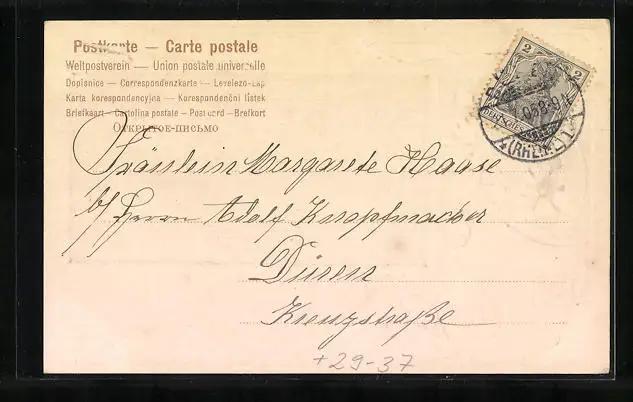 Postkarte — Carte postale
Weltpostverein — Union postale universelle
Dopisnice — Correspondenzkarte — Levelezo-Lap
Karta korespondencyjna — Korespondenční lístek
Briefkaart — Cartolina postale — Post card — Brefkort
Открытое-письмо
2 2
DEUTSCHES
(RHEINL)
Fräulein Margarete Haase
b/ Herrn Adolf Knopfmacher
Düren
Kreuzstraße
+29-37